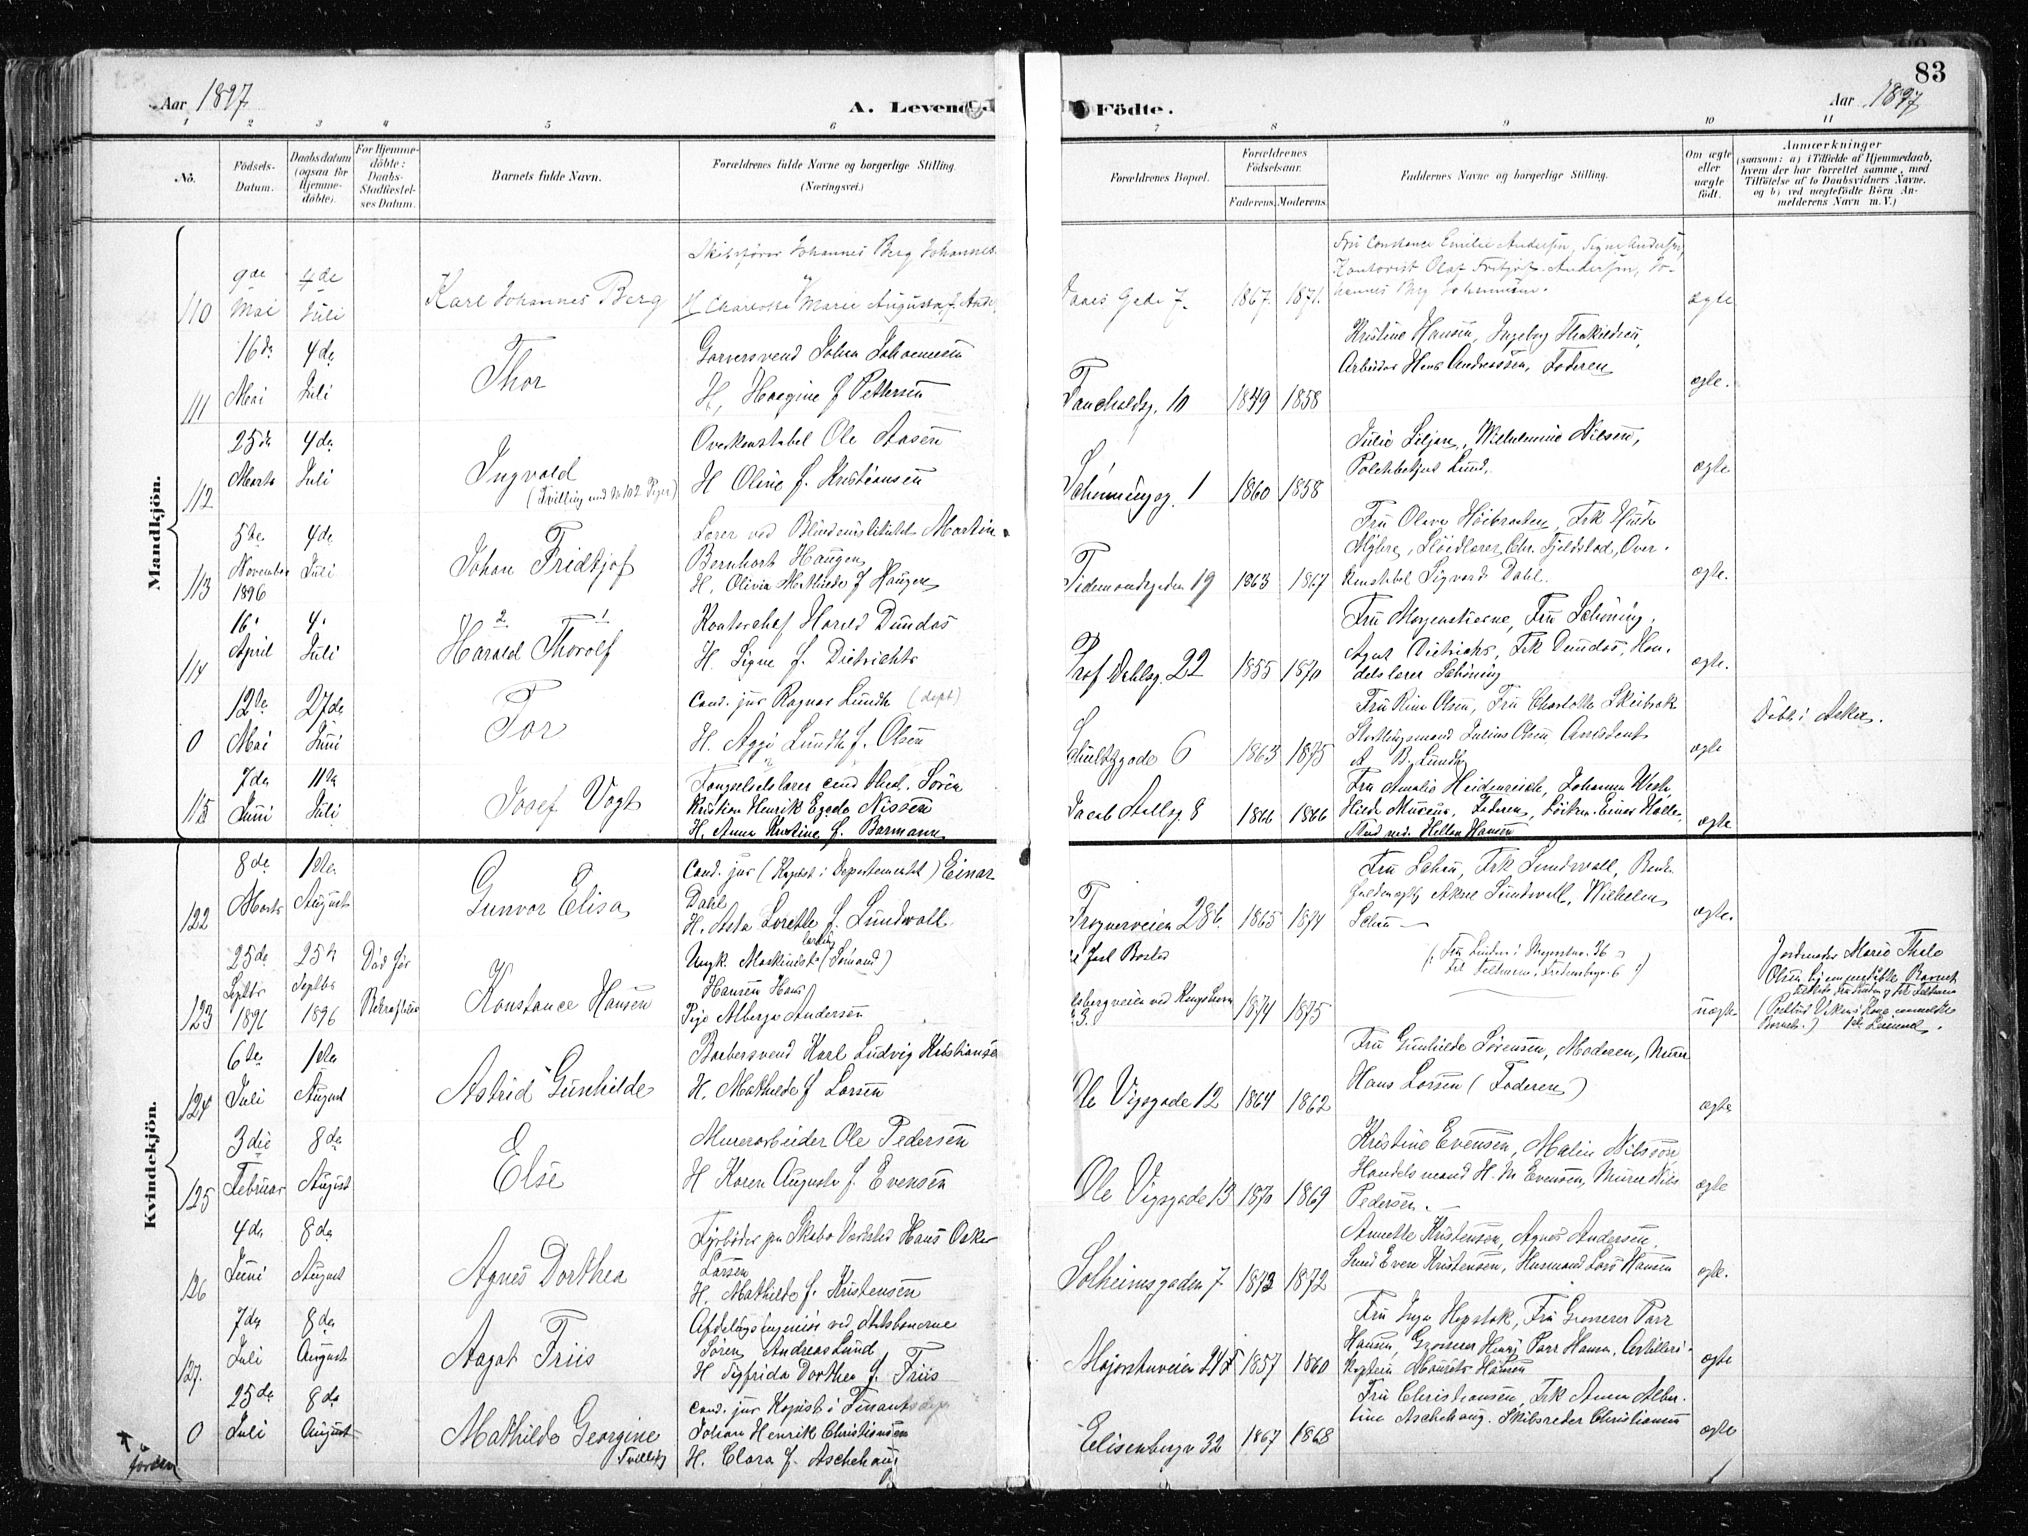 83
Aar 1897
A. Levende Födte.
Aar 1897
1 2 3 4 5 6 7 8 9 10 11
No.
Födsels-
Datum.
Daabsdatum
(ogsaa for
Hjemme-
döbte).
For Hjemme-
döbte:
Daabs-
Stadfæstel-
ses Datum.
Barnets fulde Navn.
Forældrenes fulde Navne og borgerlige Stilling.
(Næringsvei.)
Forældrenes Bopæl.
Forældrenes
Födselsaar.
Faderens. Moderens.
Faddernes Navne og borgerlige Stilling.
Om ægte
eller
uægte
født.
Anmærkninger
(saasom: a) i Tilfælde af Hjemmedaab,
hvem der har forrettet samme, med
Tilføielse af to Daabsvidners Navne.
og b) ved uægtefødte Börn An-
melderens Navn m. V.)
Mandkjön.
110
9de
Mai
4de
Juli
Karl Johannes Berg
Skibsfører Johannes Berg Johannes
H. Charlotte Marie Augusta f. And
Gade 7
1867. 1871.
Fru Constance Emilie Andersen, Signe Andersen,
Kontorist Olaf Fritjof Andersen, Jo-
hannes Berg Johannesen.
ægte
111
16de
Mai
4de
Juli
Thor
Garversvend Johan Johannesen
H. Hargine f Pettersen
10
1849 1858
Kristine Hansen, Ingeborg
Arbeider Hans Andreassen, Faderen
ægte.
112
25de
Marts
4de
Juli
Ingvald
(Tvilling med No 102 Piger)
Overkonstabel Ole Aasen
H Oline f. Kristiansen
Schønningsg. 1
1860 1858
Julie Siljan, Wilhelmine Nilsen,
Lund.
ægte
113
5te
November
1896
4de
Juli
Johan Fridtjof
Lærer ved Blindeinstitutet Martin
Bernhart Haugen
H. Olivia Mathilde f Haugen
Tidemandsgaden 19
1863 1867
Fru Olava Høibraaten, Frk
Myhre, Sløidlærer Chr. Fjeldstad, Over-
konstabel Sigvard Dahl.
ægte.
114
16.
April
4.
Juli
2 1
Harald Thorolf
Kontorchef Harald Dundas
H. Signe f. Dietrichs
Prof Dahlsg. 22
1855 1870
Fru Morgenstierne, Fru Schøning,
Agent Dietrichs, Frk Dundas, Han-
delslærer Schøning
ægte.
0
12te
Mai
27de
Juni
Tor
Cand. jur Ragnar Lundh (dept)
H. Aggi Lundh f. Olsen
Schultzgade 6
1863 1875
Fru Rina Olsen, Fru Charlotte Skeibrok
Stortingsmand Julius Olsen, Assistent
A B. Lundh
ægte
Døbt i Asker.
115
7de
Juni
11te
Juli
Josef Vogt
Fængselslærer cand theol. Søren
Kristian Henrik Egede Nissen
H. Anna Kristine f. Barmann
Jacob Aallsg 8
1866 1866
Fru Amalie Heidenreich, Johanna Vogt,
Hilda Muceus, Faderen, Løitn. Einar Holte,
Stud med. Hellen Hansen
ægte
Kvindekjön.
122
8de
Marts
1ste
August
Gunvor Elisa
Cand. jur (Kopist i Departementet) Einar
Dahl
H. Asta Lorette f. Lundwall
Frognerveien 28b.
1865 1874
Fru Schou, Frk Lundwall,
Aksel Lundwall, Wilhelm
Schou
ægte.
123
25de
Septbr
1896
25de
Septbr
1896
Død før
Bekræftelsen
Konstance Hansen
Ungk. (Sømand)
Hansen Hans
Pige Alberga Andersen
1874 1875
uægte
Jordmoder Marie Thale
Olsen hjemmedøbte Barnet
124
6te
Juli
1ste
August
Astrid Gunhilde
Barbersvend Karl Ludvig Kristiansen
H. Mathilde f Larsen
Ole Vigsgade 12
1864 1862
Fru Gunhilde Sørensen, Moderen, Murer
Hans Larsen (Faderen)
ægte
125
3die
Februar
8de
August
Else
Murerarbeider Ole Pedersen
H Karen Augusta f. Evensen
Ole Vigsgade 13
1870 1869
Kristine Evensen, Malin Nilsson
Handelsmand H. M Evensen, Murer Nils
Pedersen.
ægte
126
4de
Juni
8de
August
Agnes Dorthea
Fyrbøder paa Skabo Værksted Hans Oskar
Larsen
H. Mathilde f. Kristensen
Solheimsgaden 7
1873 1872
Annette Kristensen, Agnes Andersen,
Even Kristensen, Husmand Lars Hansen
ægte.
127.
7de
Juli
8de
August
Aagot Friis
Afdelingsingeniør ved Statsbanerne
Søren Andreas Lund
H Sigfrida Dorthea f. Friis
Majorstuveien
1857 1860
Fru Inga Hopstok, Fru Grosserer Parr
Hansen, Grosserer Henry Parr Hansen, Artilleri-
kaptein Hansen
ægte
0
25de
Juli
8de
August
Mathilde Georgine
Tvilling
Cand. jur Kopist i Finantsdep
Johan Henrik Christiansen
H. Clara f. Aschehaug
Elisenbergv 32
1867 1868
Fru Christiansen, Frk Anna Alber-
tine Aschehaug. Skibsreder Christiansen
ægte